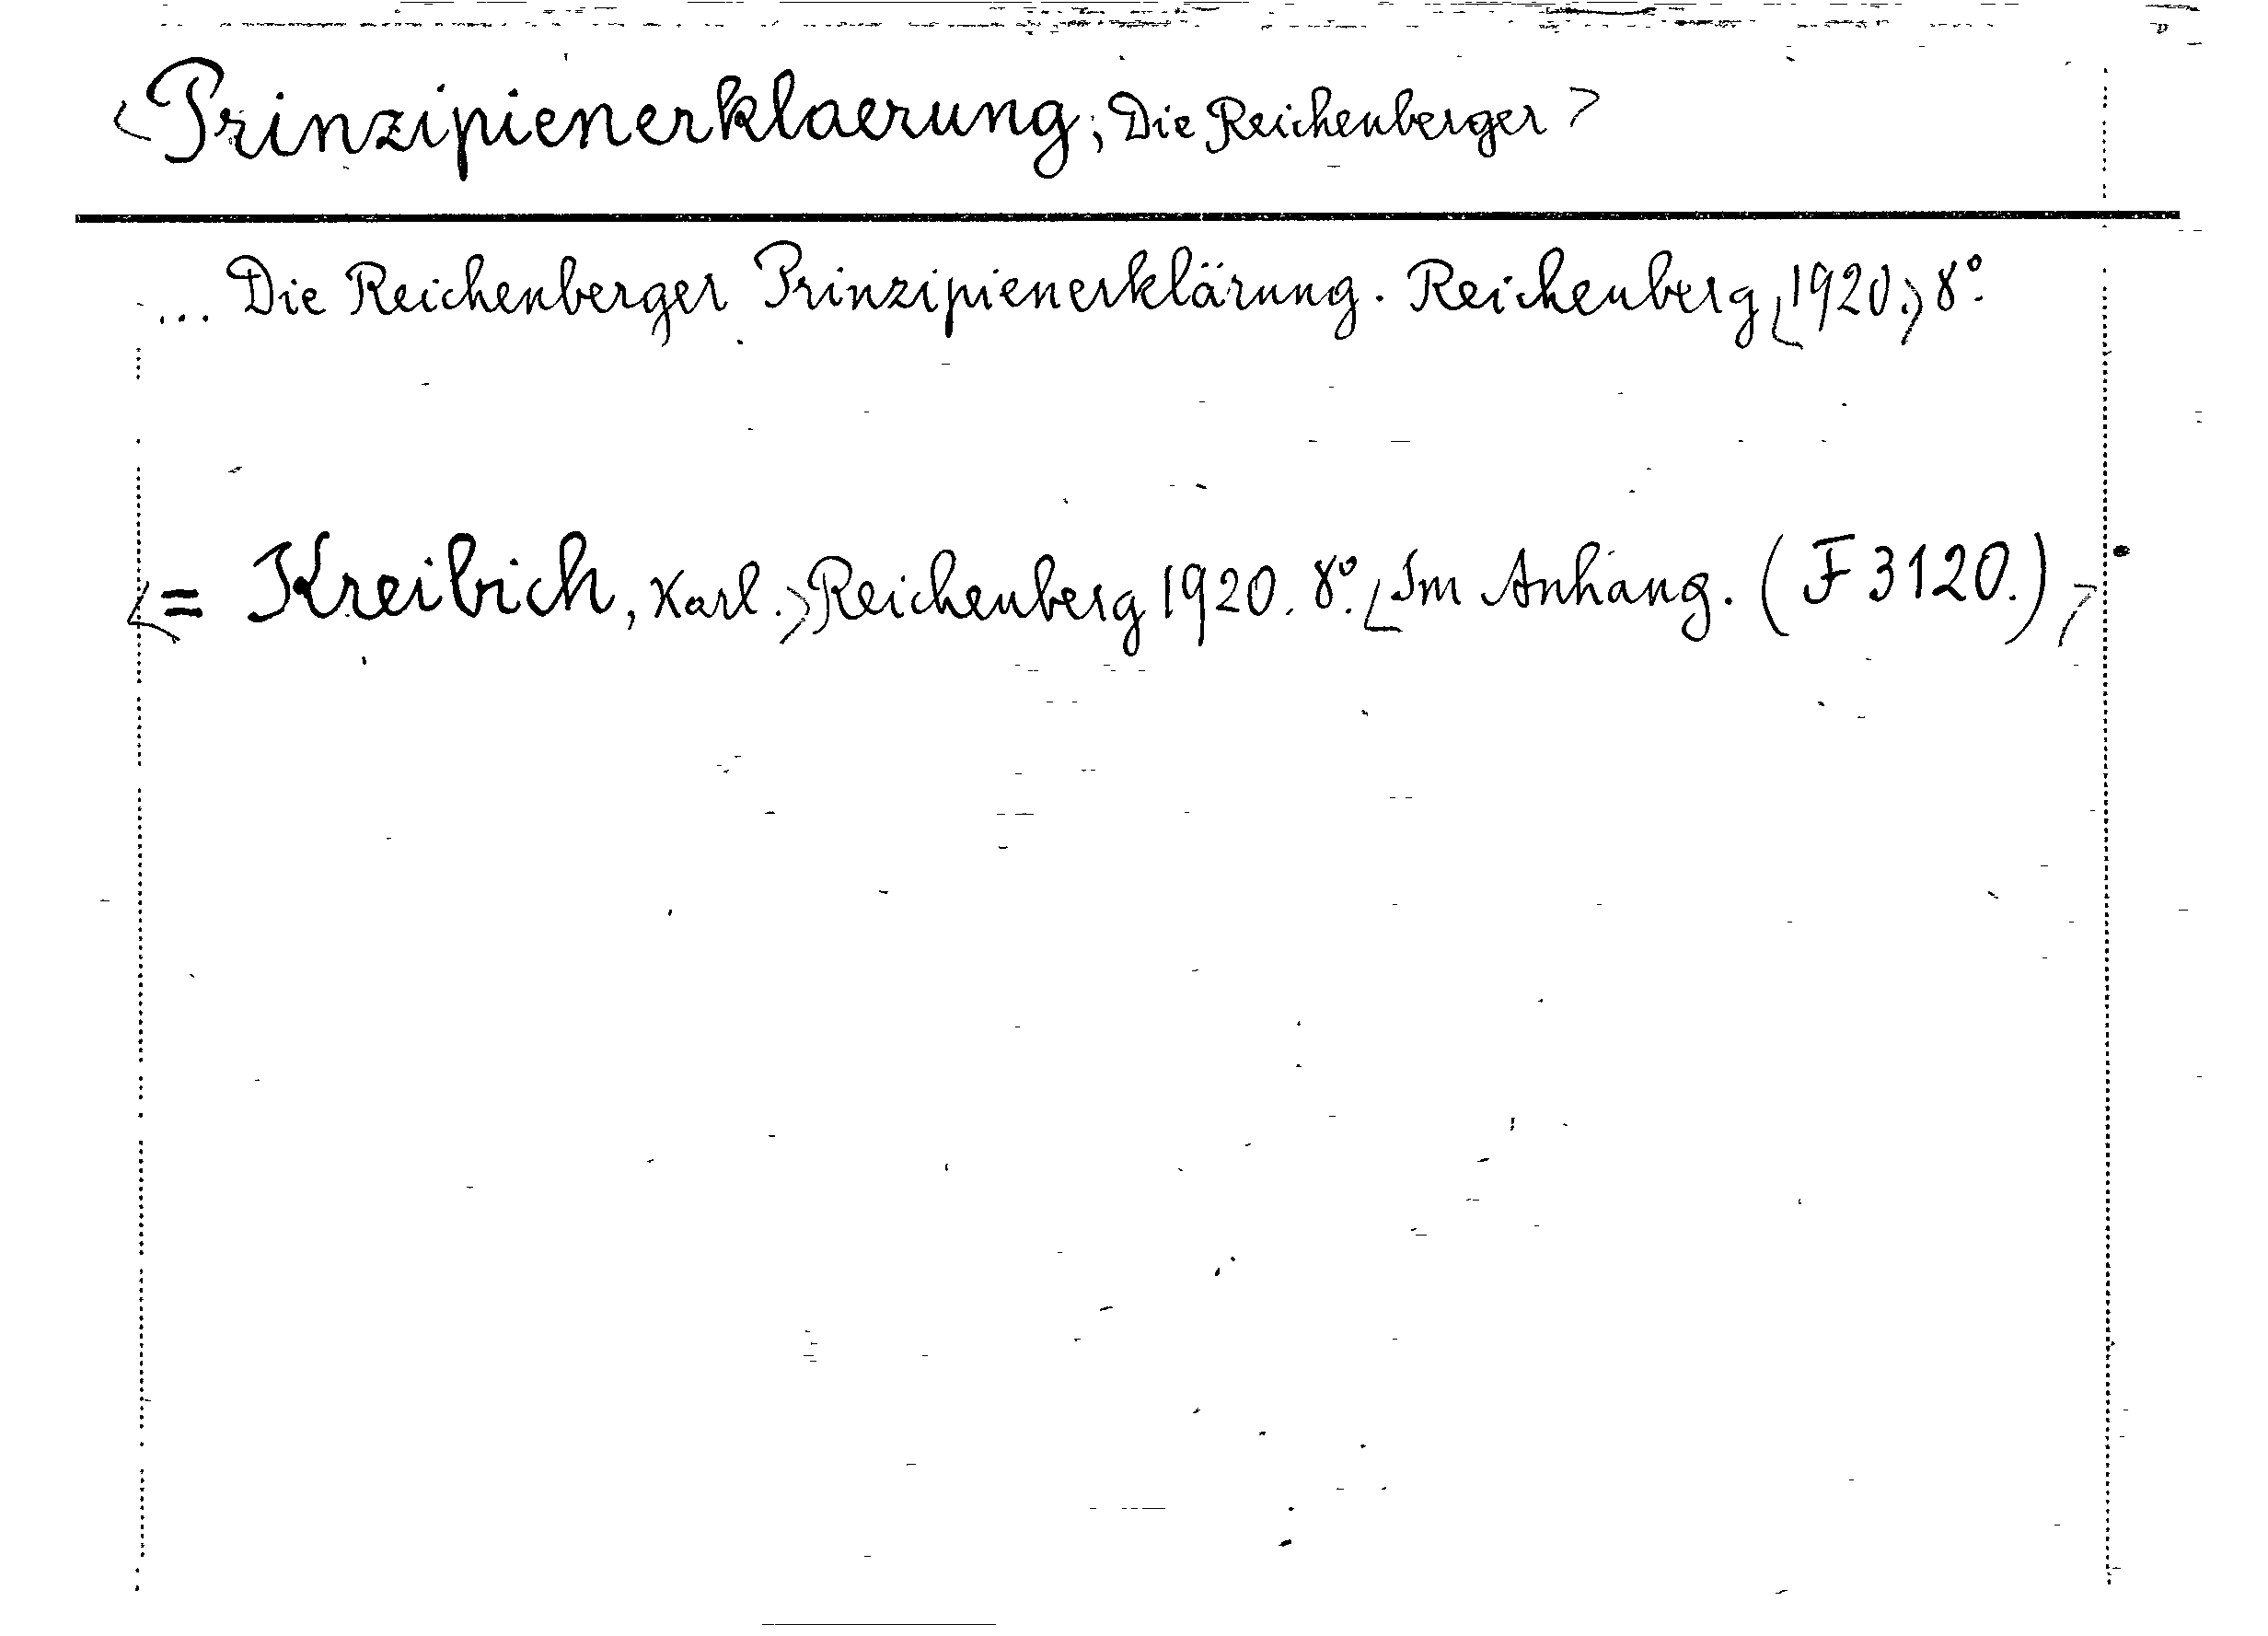 <Prinzipienerklaerung, Die Reichenberger>
... Die Reichenberger Prinzipienerklärung. Reichenberg <1920.> 8°.
<= Kreibich, Karl.> Reichenberg 1920. 8°. <Im Anhang. (F 3120.)>